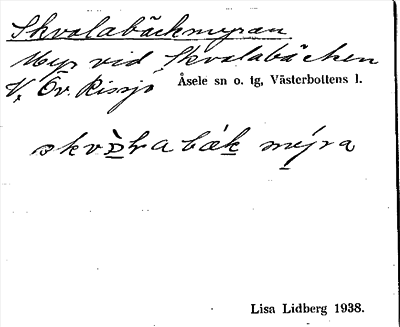 Skvalabäckmyran
Myr vid Skvalabäcken
V. Öv. Rissjö Åsele sn o. tg, Västerbottens l.
bäk mýra
Lisa Lidberg 1938.